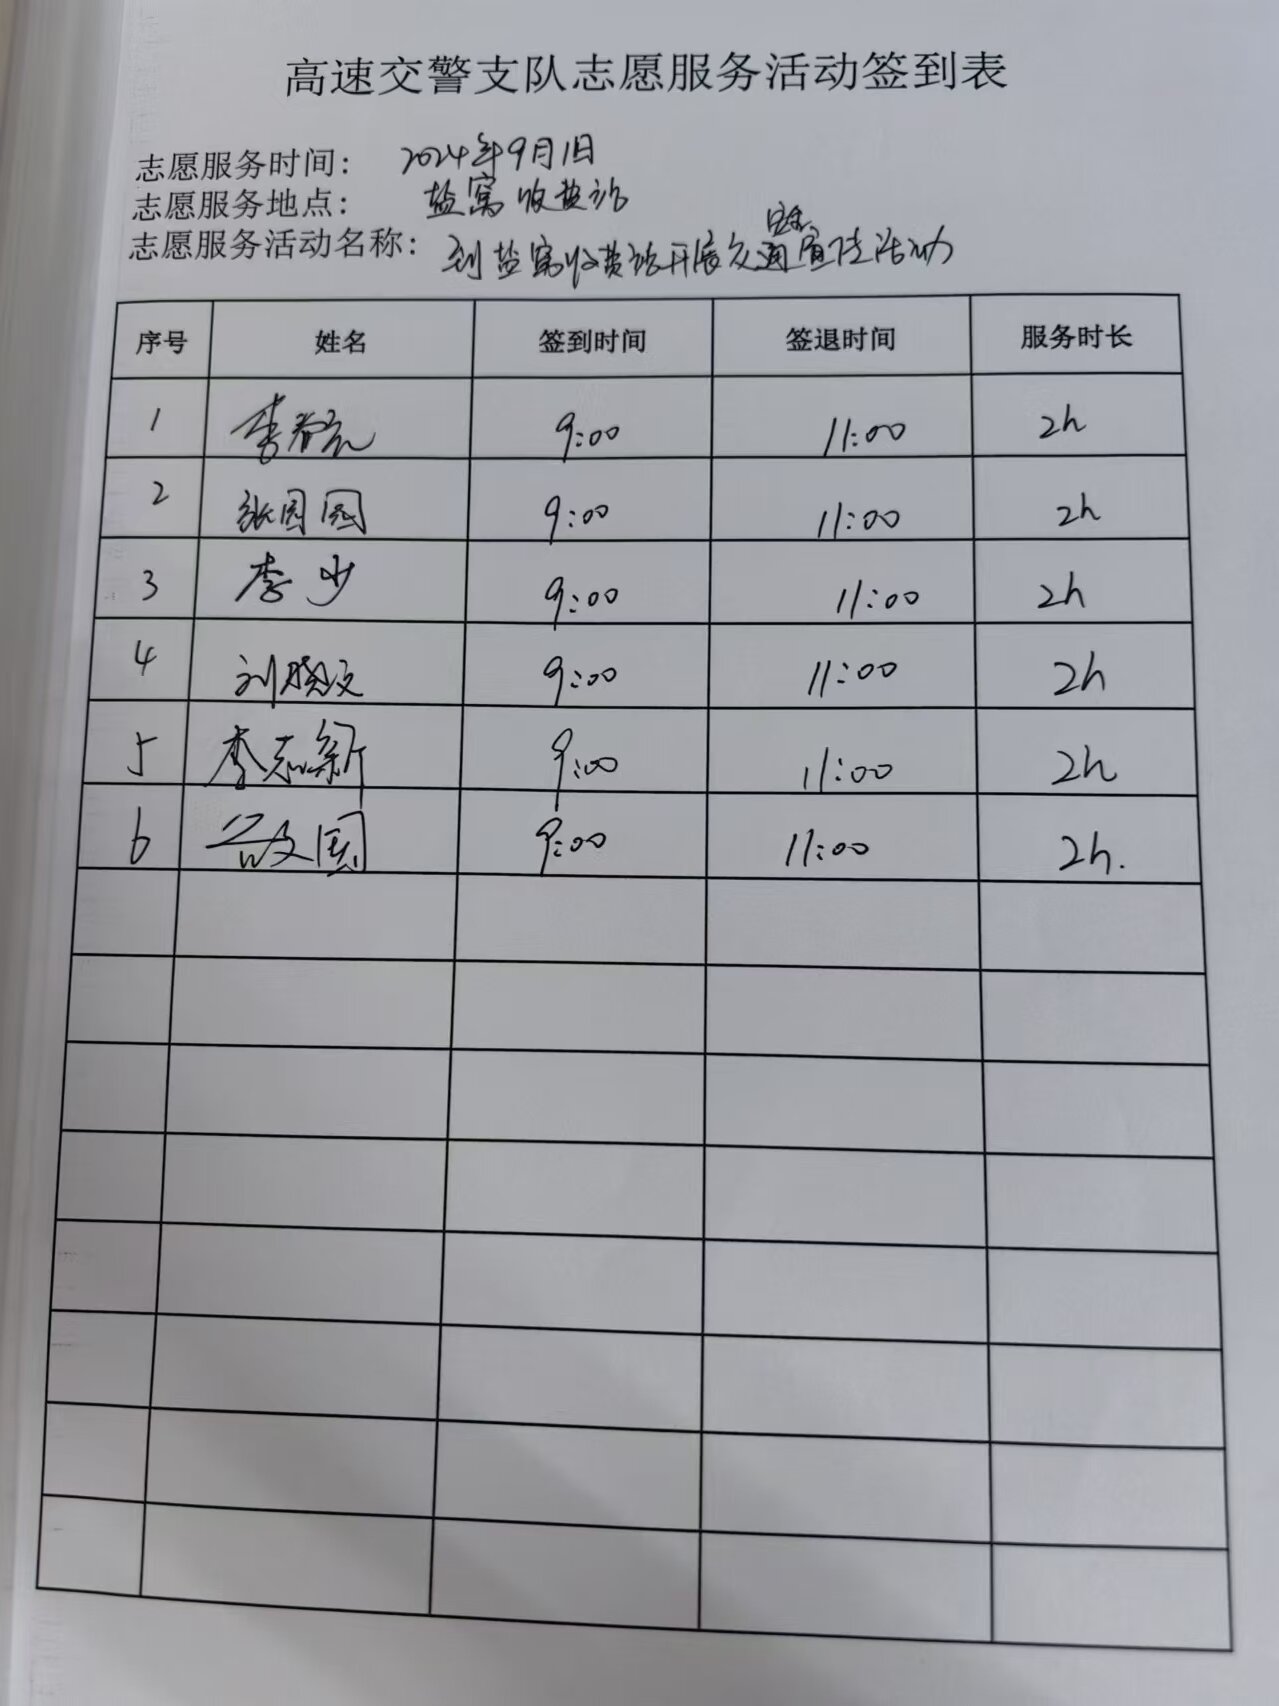 高速交警支队志愿服务活动签到表
志愿服务时间： 2024年9月1日
志愿服务地点： 盐窝收费站
志愿服务活动名称： 到盐窝收费站开展交通安全宣传活动
序号 姓名 签到时间 签退时间 服务时长
1 李 9:00 11:00 2h
2 张园园 9:00 11:00 2h
3 李少 9:00 11:00 2h
4 刘晓文 9:00 11:00 2h
5 李志新 9:00 11:00 2h
6 国 9:00 11:00 2h.